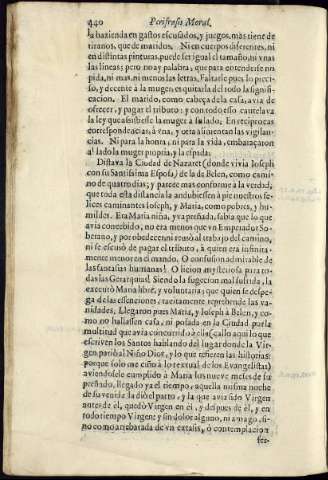 440 Perifrasis Moral.
la hazienda en gastos escusados, y juegos, màs tiene de
tiranos, que de maridos. Ni en cuerpos diferentes, ni
en distintas pinturas, puede ser igual el tamaño, ni vnas
las lineas; pero no ay palabra, que para entenderse no
pida, ni mas, ni menos las letras. Faltarle pues lo preci-
so, y decente à la muger, es quitarla del todo la signifi-
cacion. El marido, como cabeça de la casa, avia de
ofrecer, y pagar el tributo; y con todo esso cautelava
la ley que asistiesse la muger à su lado. En reciprocas
correspondencias, à vna, y otra alimentan las vigilan-
cias. Ni para la honra, ni para la vida, embaraçaron
al lado la muger propria, y la espada.
Distava la Ciudad de Nazaret (donde vivia Ioseph
con su Santissima Esposa) de la de Belen, como cami-
no de quatro dias; y parece mas conforme à la verdad,
que toda esta distancia la anduviessen à pie nuestros fe-
lices caminantes Ioseph, y Maria, como pobres, y hu-
mildes. Era Maria niña, y va preñada, sabia que lo que
avia concebido, no era menos que vn Emperador So-
berano, y por obedecer, ni reusò al trabajo del camino,
ni se escusò de pagar el tributo, à quien era infinita-
mente menor en el mando. O confusion admirable de
las fantasias humanas! O licion mysteriosa para to-
das las Gerarquias! Siendo la sugecion mal sufrida, la
executò Maria libre, y voluntaria; que quien se despe-
ga de las essenciones, tacitamente reprehende las va-
nidades. Llegaron pues Maria, y Ioseph à Belen, y co-
mo no hallassen casa, ni posada en la Ciudad por la
multitud que avia concurrido à ella (callo aqui lo que
escriven los Santos hablando del lugar donde la Vir-
gen pariò al Niño Dios, y lo que refieren las historias:
porque solo me ciño à lo textual de los Evangelistas)
aviendosele cumplido à Maria los nueve meses de su
preñado, llegado ya el tiempo, aquella misma noche
de su venida la diò el parto, y la que avia sido Virgen
antes de èl, quedò Virgen en èl, y despues de èl, y en
todo tiempo Virgen: y sin dolor alguno, ni amago, si-
no como arrebatada de vn extasis, ò contemplacion